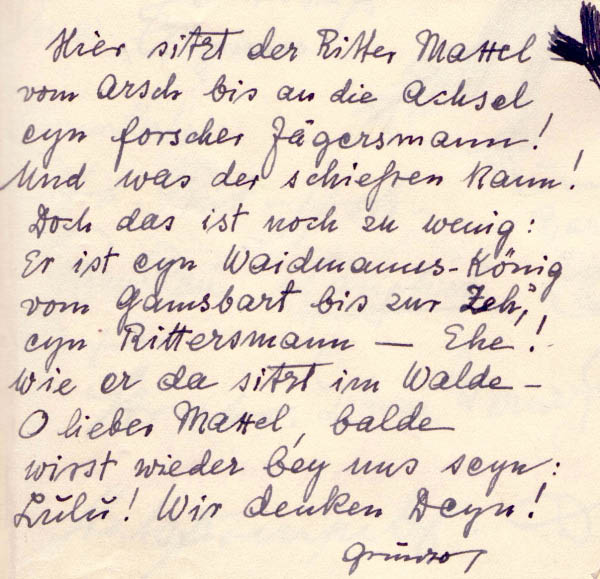 Hier sitzt der Ritter Mattel
vom Arsch bis an die Achsel
eyn forscher Jägersmann!
Und was der schießen kann!
Doch das ist noch zu wenig:
Er ist eyn Waidmanns-König
vom Gamsbart bis zur Zeh,
eyn Rittersmann – Ehe!
Wie er da sitzt im Walde –
O lieber Mattel, balde
wirst wieder bey uns seyn:
Lulu! Wir denken Deyn!